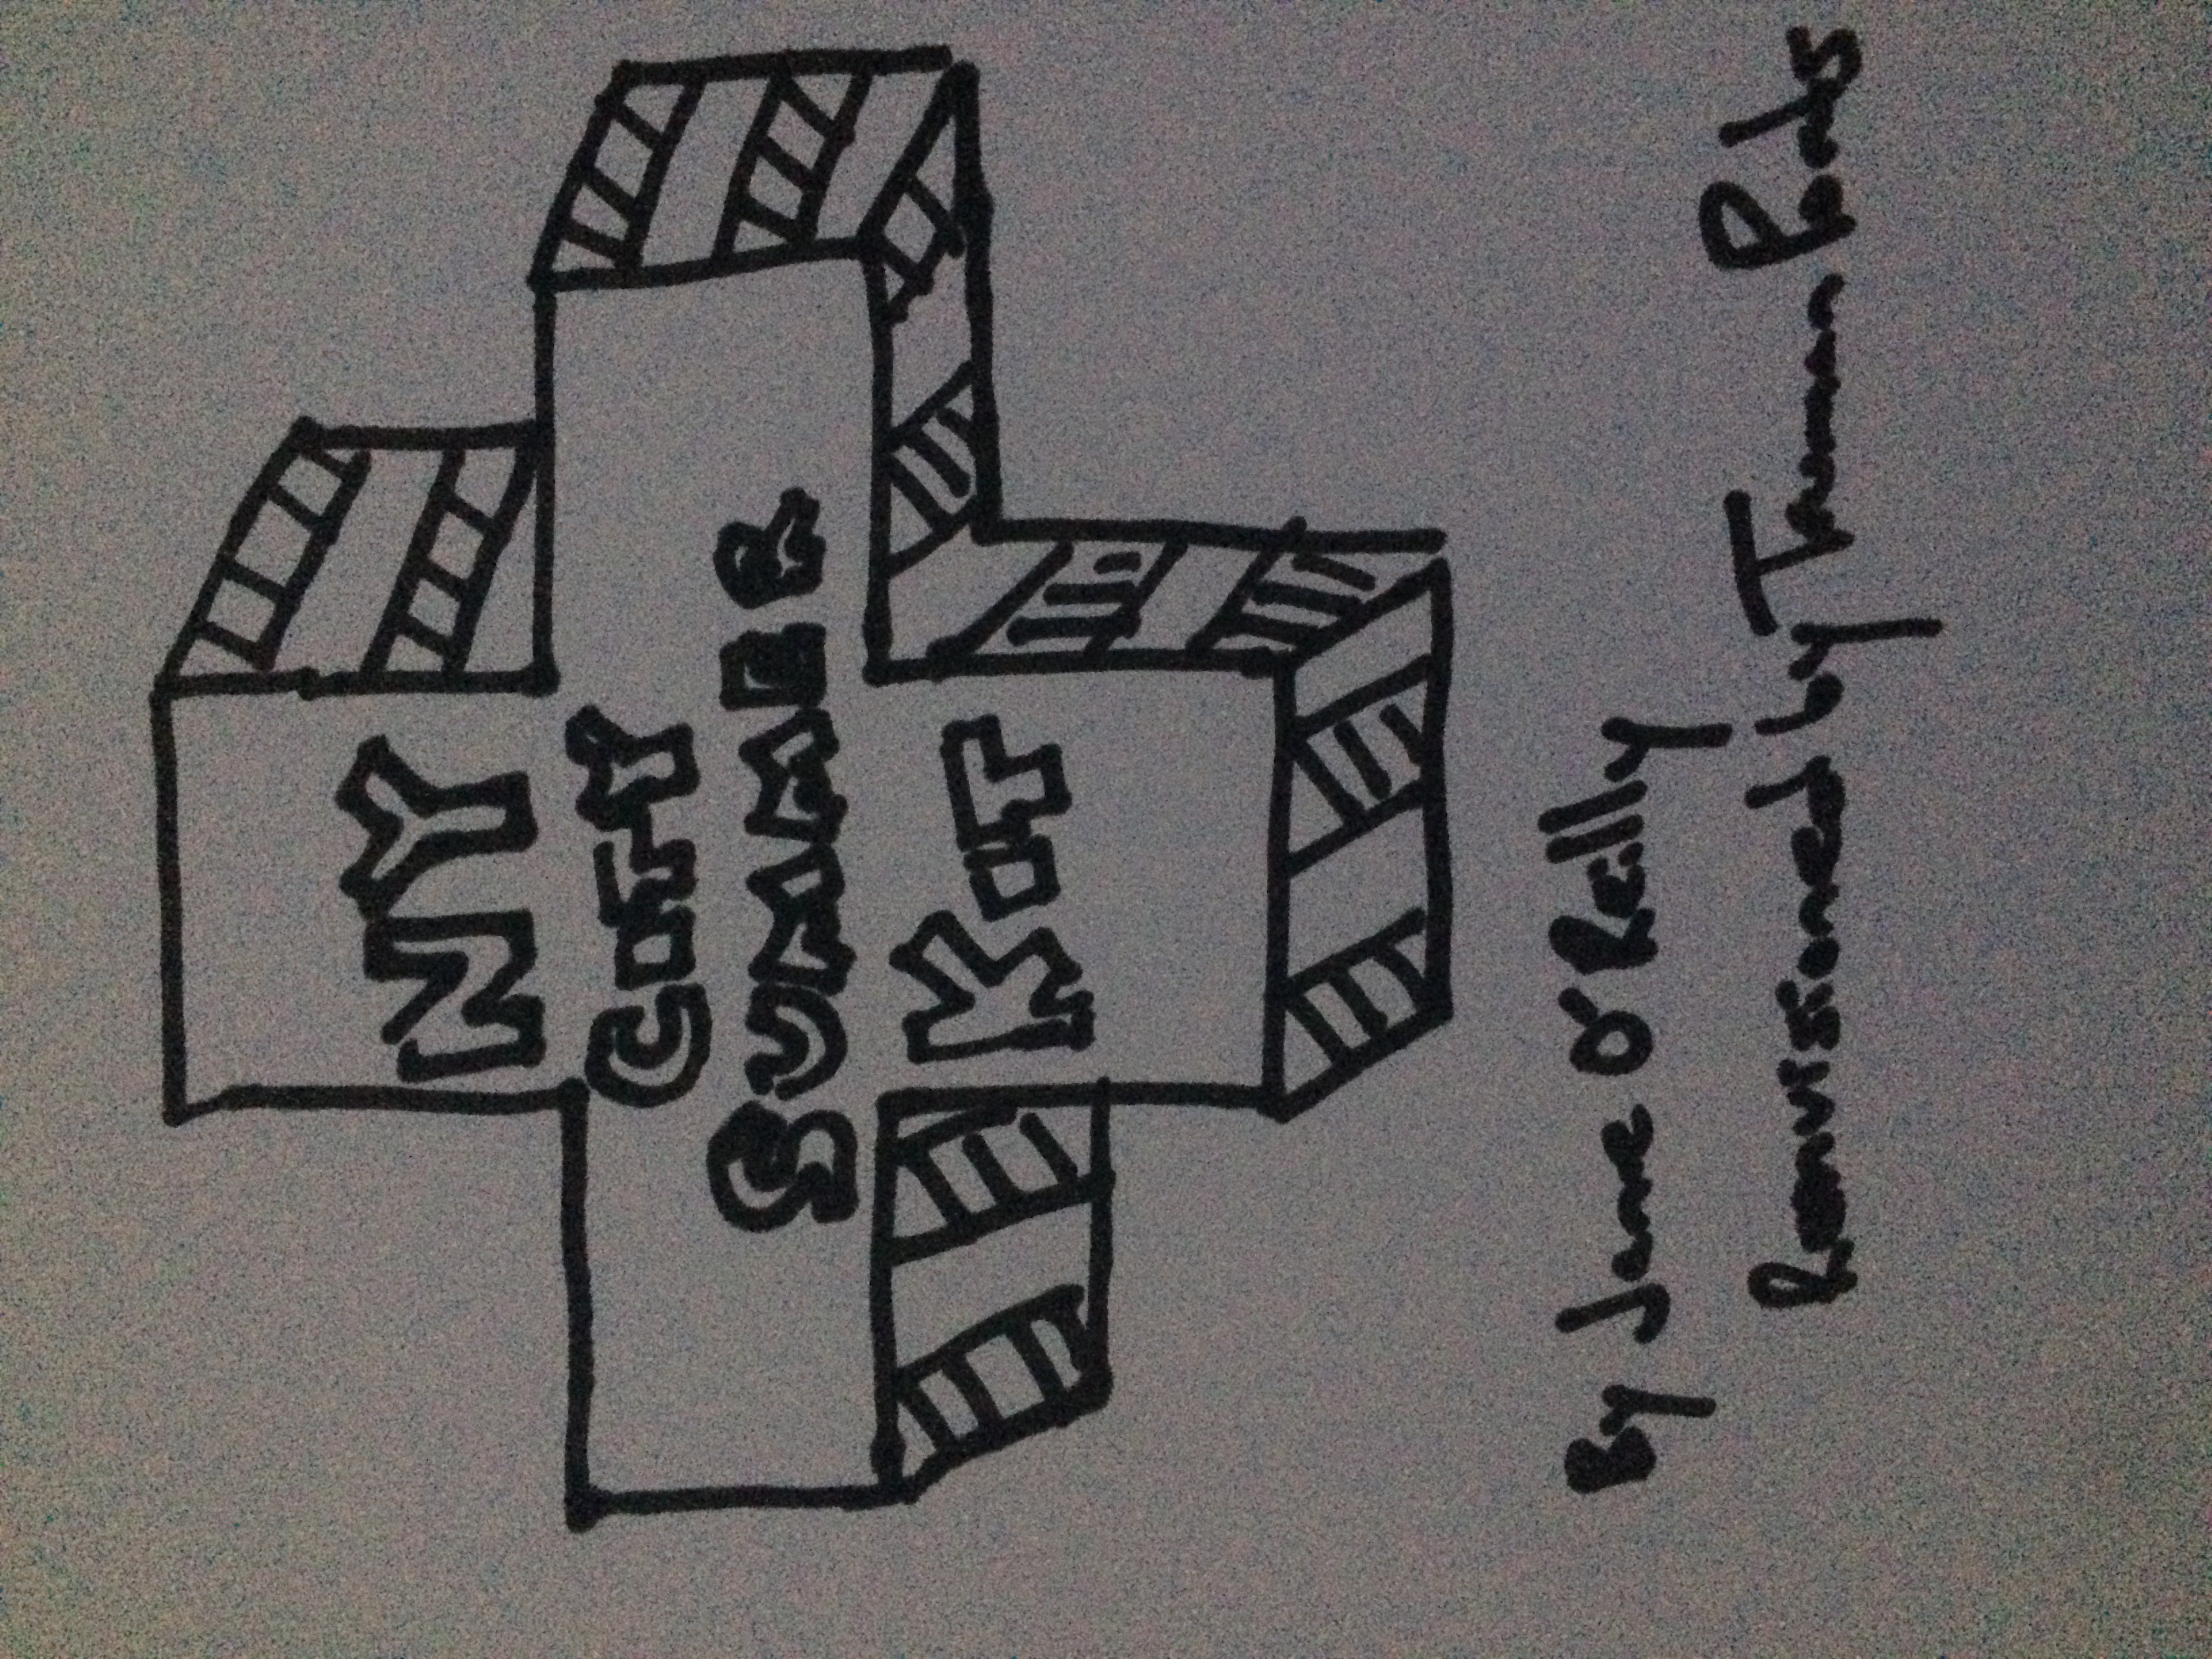 NY
CITY
SUMMER
KIT
By Jane O'Reilly
Reenvisioned by Truman Ports